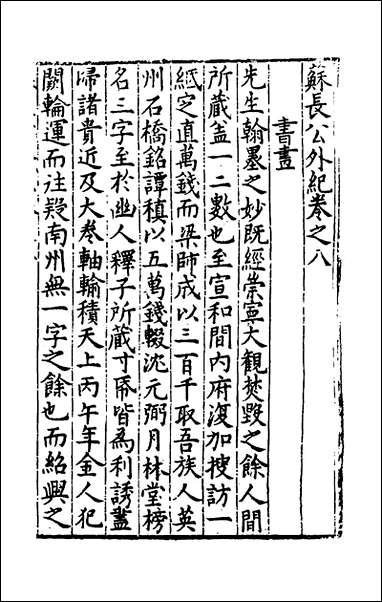 蘇長公外紀卷之八
書畫
先生翰墨之妙既經崇寧大觀焚毀之餘人間
所藏盖一二數也至宣和間内府復加搜訪一
紙定直萬錢而梁師成以三百千取吾族人英
州石橋銘譚稹以五萬錢輟沈元弼月林堂榜
名三字至於幽人釋子所藏寸帋皆為利誘盡
歸諸貴近及大卷軸輪積天上丙午年金人犯
闕輪運而往疑南州無一字之餘也而紹興之